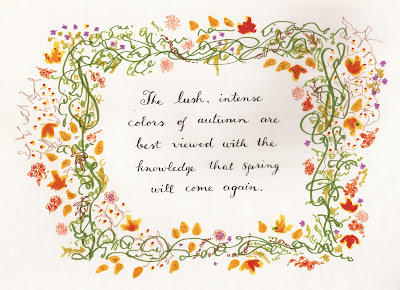 The lush, intense
colors of autumn are
best viewed with the
knowledge that spring
will come again.